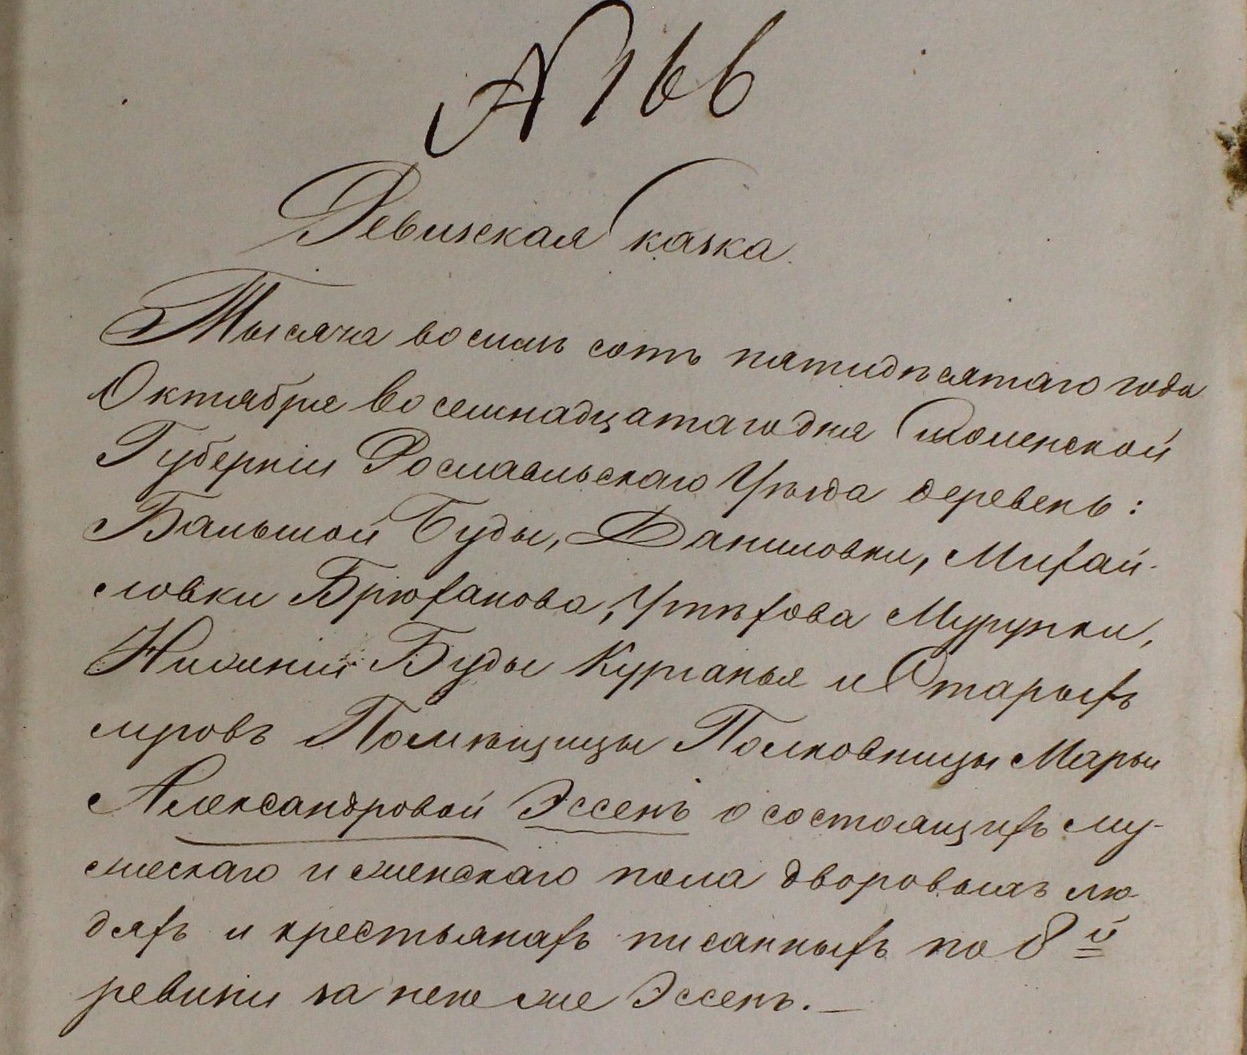 № 166
Ревизская сказка
Тысяча восемь сотъ пятидесятаго года
Октября восемнадцатаго дня Смоленской
Губерніи Рославльскаго Уѣзда деревень:
Бальшой Буды, Даниловки, Михай-
ловки Брюханова, Утѣхова Мурупки,
Нижній Буды Курганья и Старыхъ
Помѣщицы Полковницы Марьи
Александровой Эссенъ о состоящихъ му-
жескаго и женскаго пола дворовыхъ лю-
дяхъ и крестьянахъ писанныхъ по 8й
ревизіи за нею же Эссенъ. —